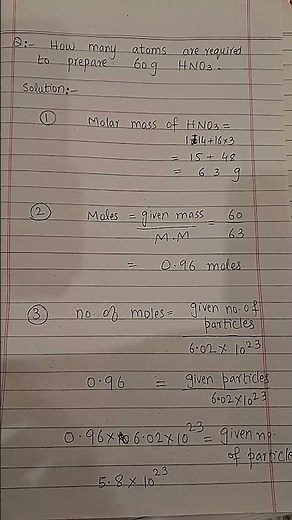 Q:- How many atoms are required
to prepare 60g HNO3.
Solution:-
① Molar mass of HNO3 =
1+14+16×3
= 15 + 48
= 63 g
② Moles = given mass = 60
M.M 63
= 0.96 moles
③ no. of moles = given no. of
particles
6.02 × 10²³
0.96 = given particles
6.02×10²³
0.96× 6.02×10²³ = given no.
of particle
5.8 × 10²³